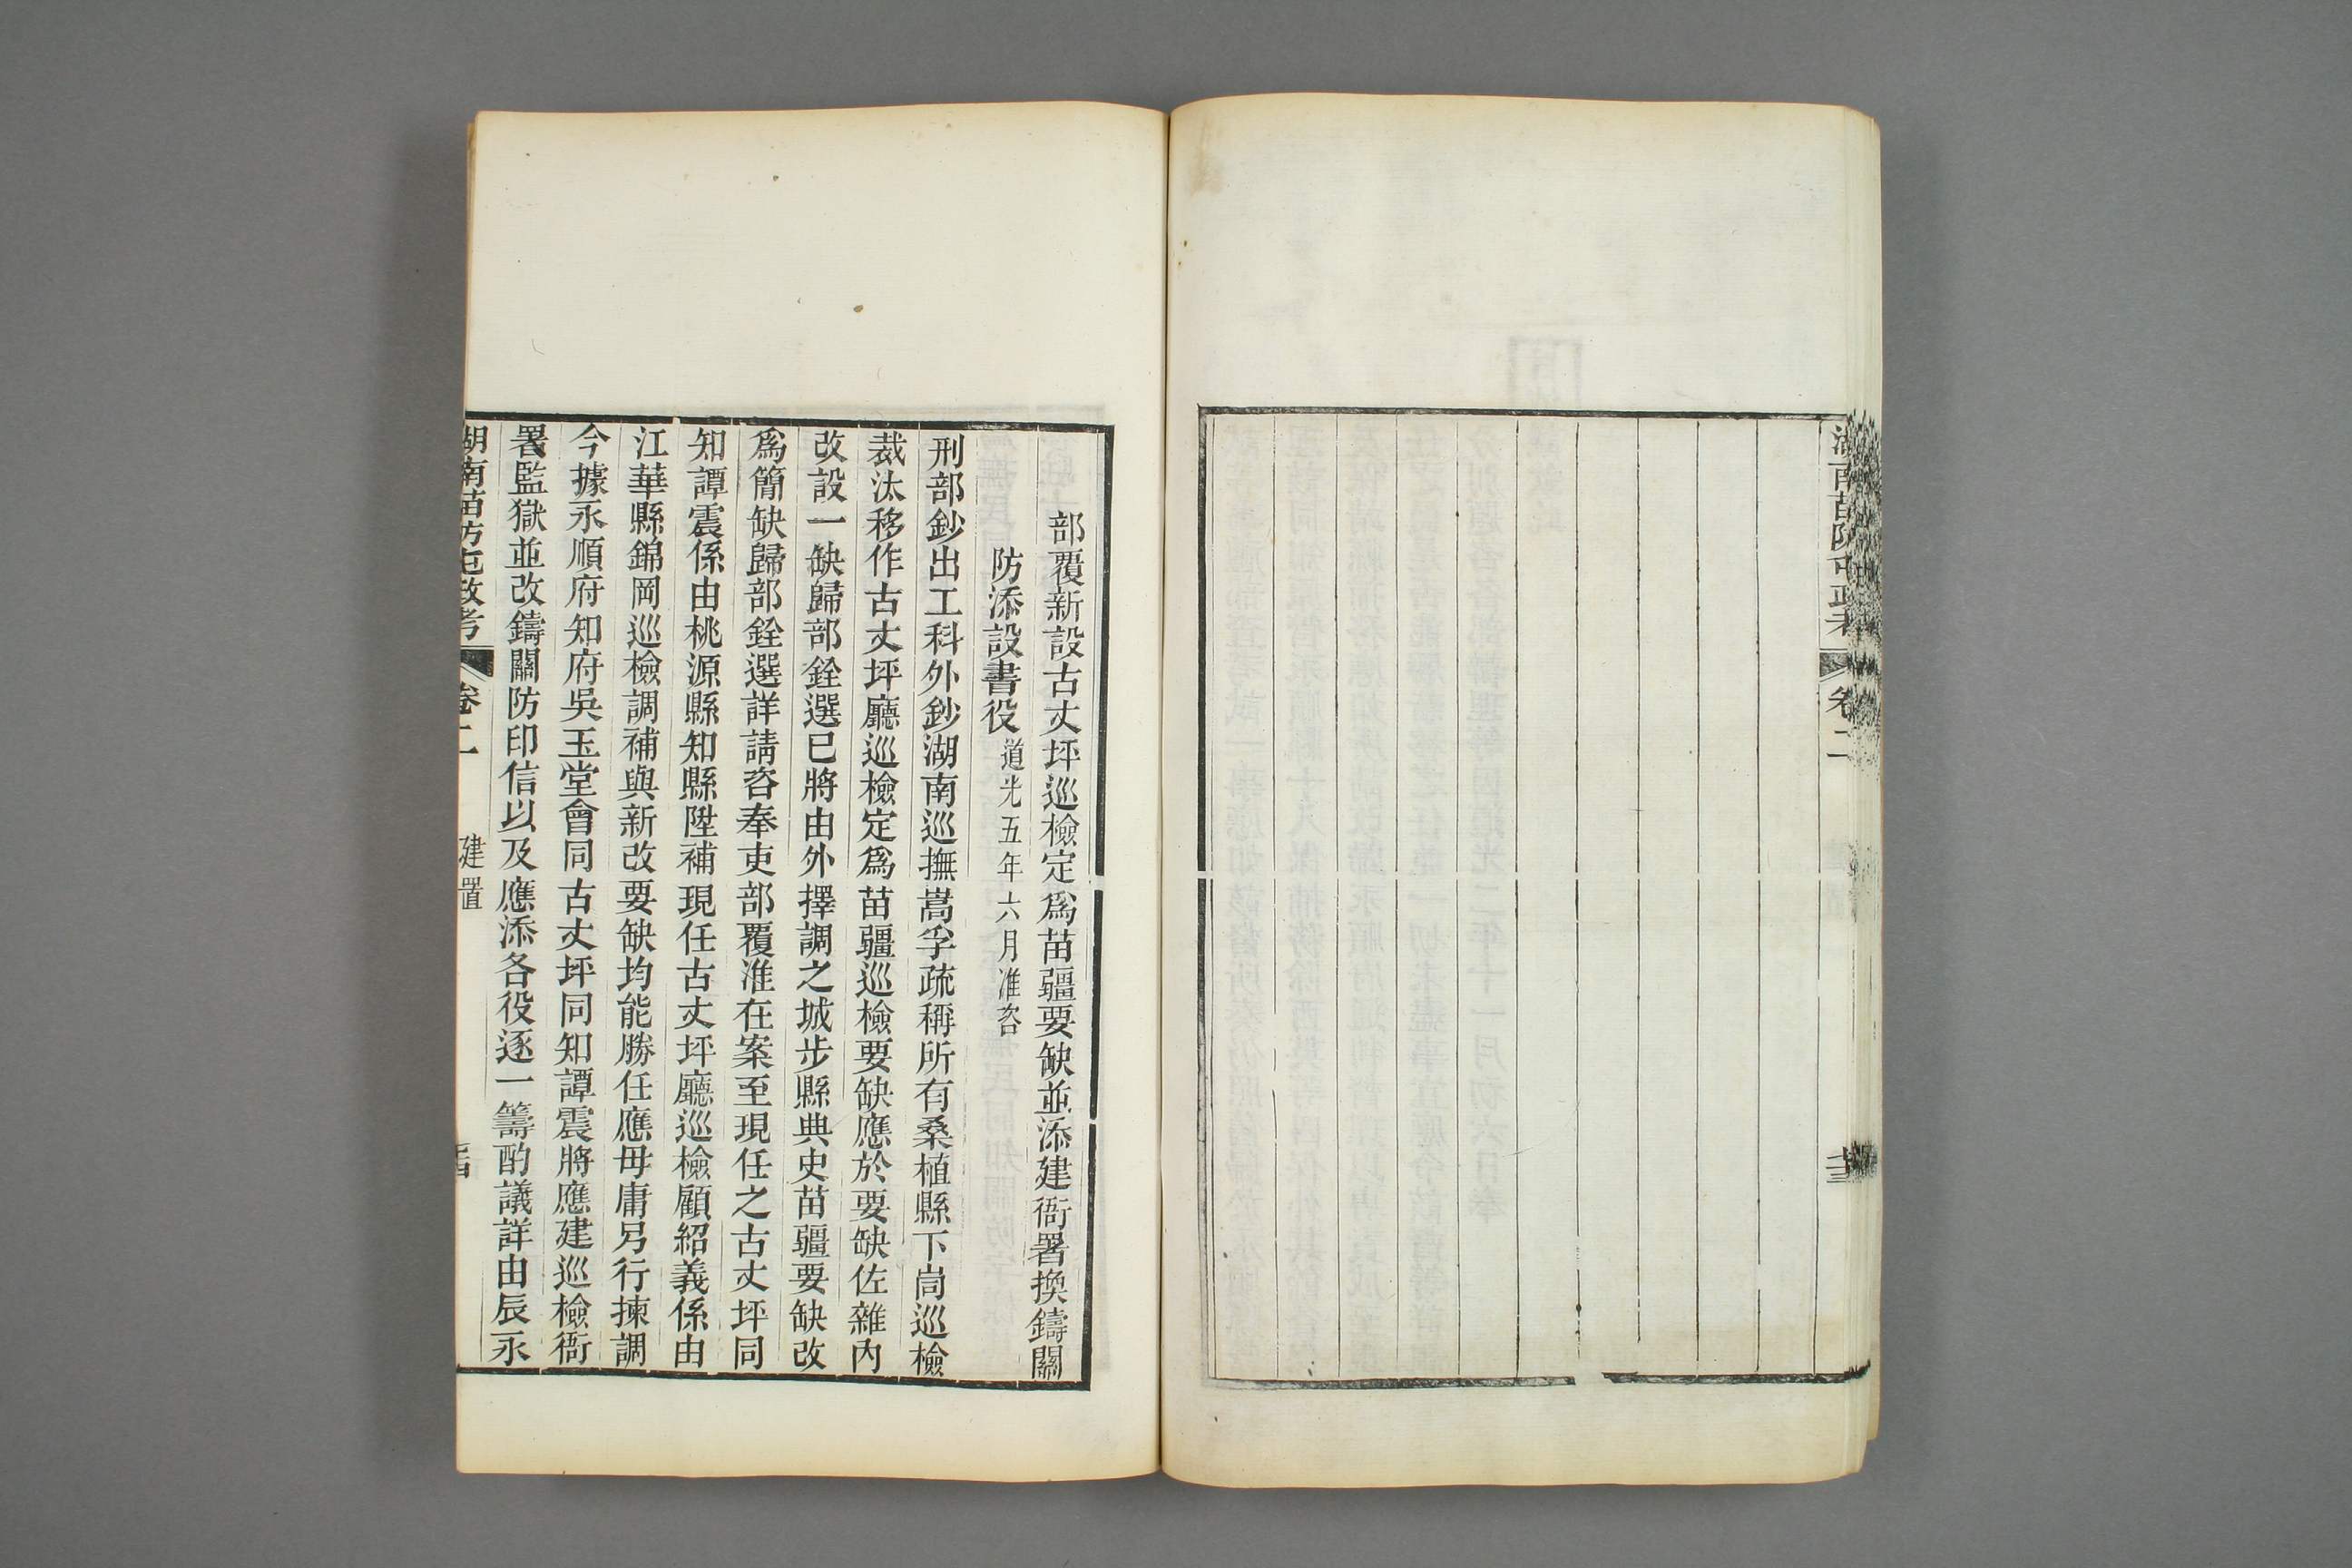 湖南苗防屯政考
卷二
部覆新設古丈坪巡檢定爲苗疆要缺並添建衙署換鑄關
防添設書役道光五年六月准咨
刑部鈔出工科外鈔湖南巡撫嵩孚疏稱所有桑植縣下峝巡檢
裁汰移作古丈坪廳巡檢定爲苗疆巡檢要缺應於要缺佐雜內
改設一缺歸部銓選已將由外擇調之城步縣典史苗疆要缺改
爲簡缺歸部銓選詳請咨奉吏部覆准在案至現任之古丈坪同
知譚震係由桃源縣知縣陞補現任古丈坪廳巡檢顧紹義係由
江華縣錦岡巡檢調補與新改要缺均能勝任應毋庸另行揀調
今據永順府知府吳玉堂會同古丈坪同知譚震將應建巡檢衙
署監獄並改鑄關防印信以及應添各役逐一籌酌議詳由辰永
湖南苗防屯政考
卷二
建置